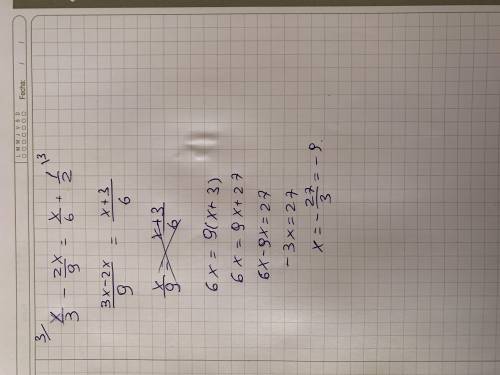 L M M J V S D
Fecha: / /
3/ x/3 - 2x/9 = x/6 + 1/2 ^3
(3x-2x)/9 = (x+3)/6
x/9 = (x+3)/6
6x = 9(x+3)
6x = 9x+27
6x-9x=27
-3x=27
x=-27/3=-9.